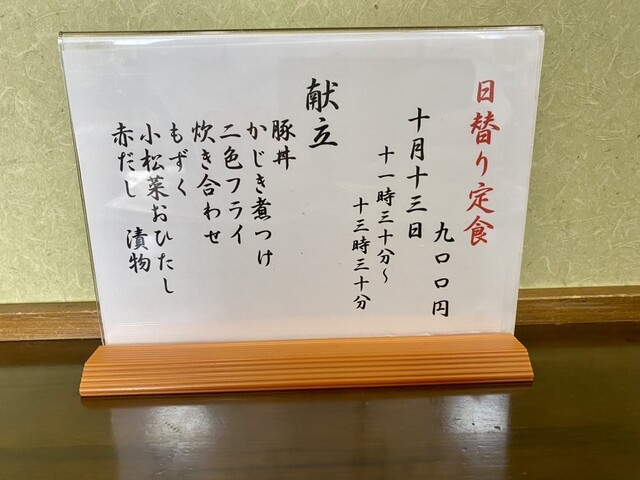 日替り定食
九〇〇円
十月十三日
十一時三十分～
十三時三十分
献立
豚丼
かじき煮つけ
二色フライ
炊き合わせ
もずく
小松菜おひたし
赤だし 漬物